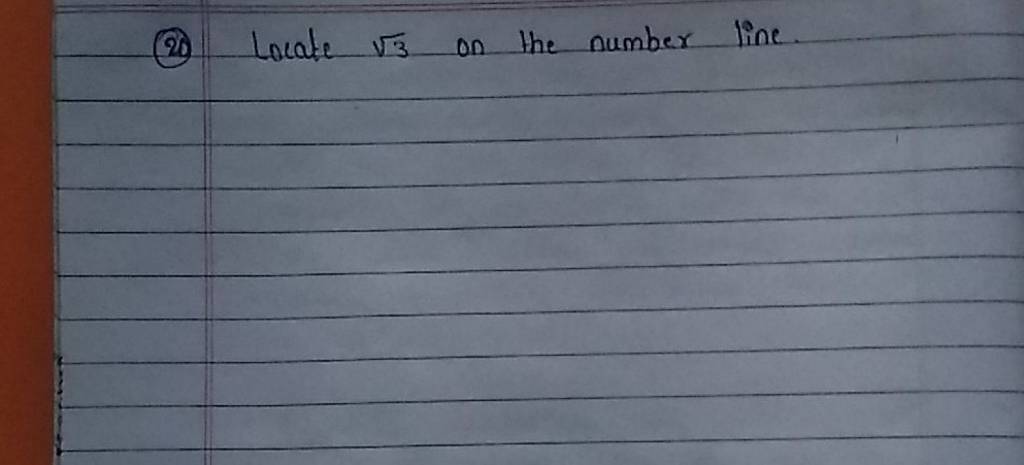 20 Locate √3 on the number line.